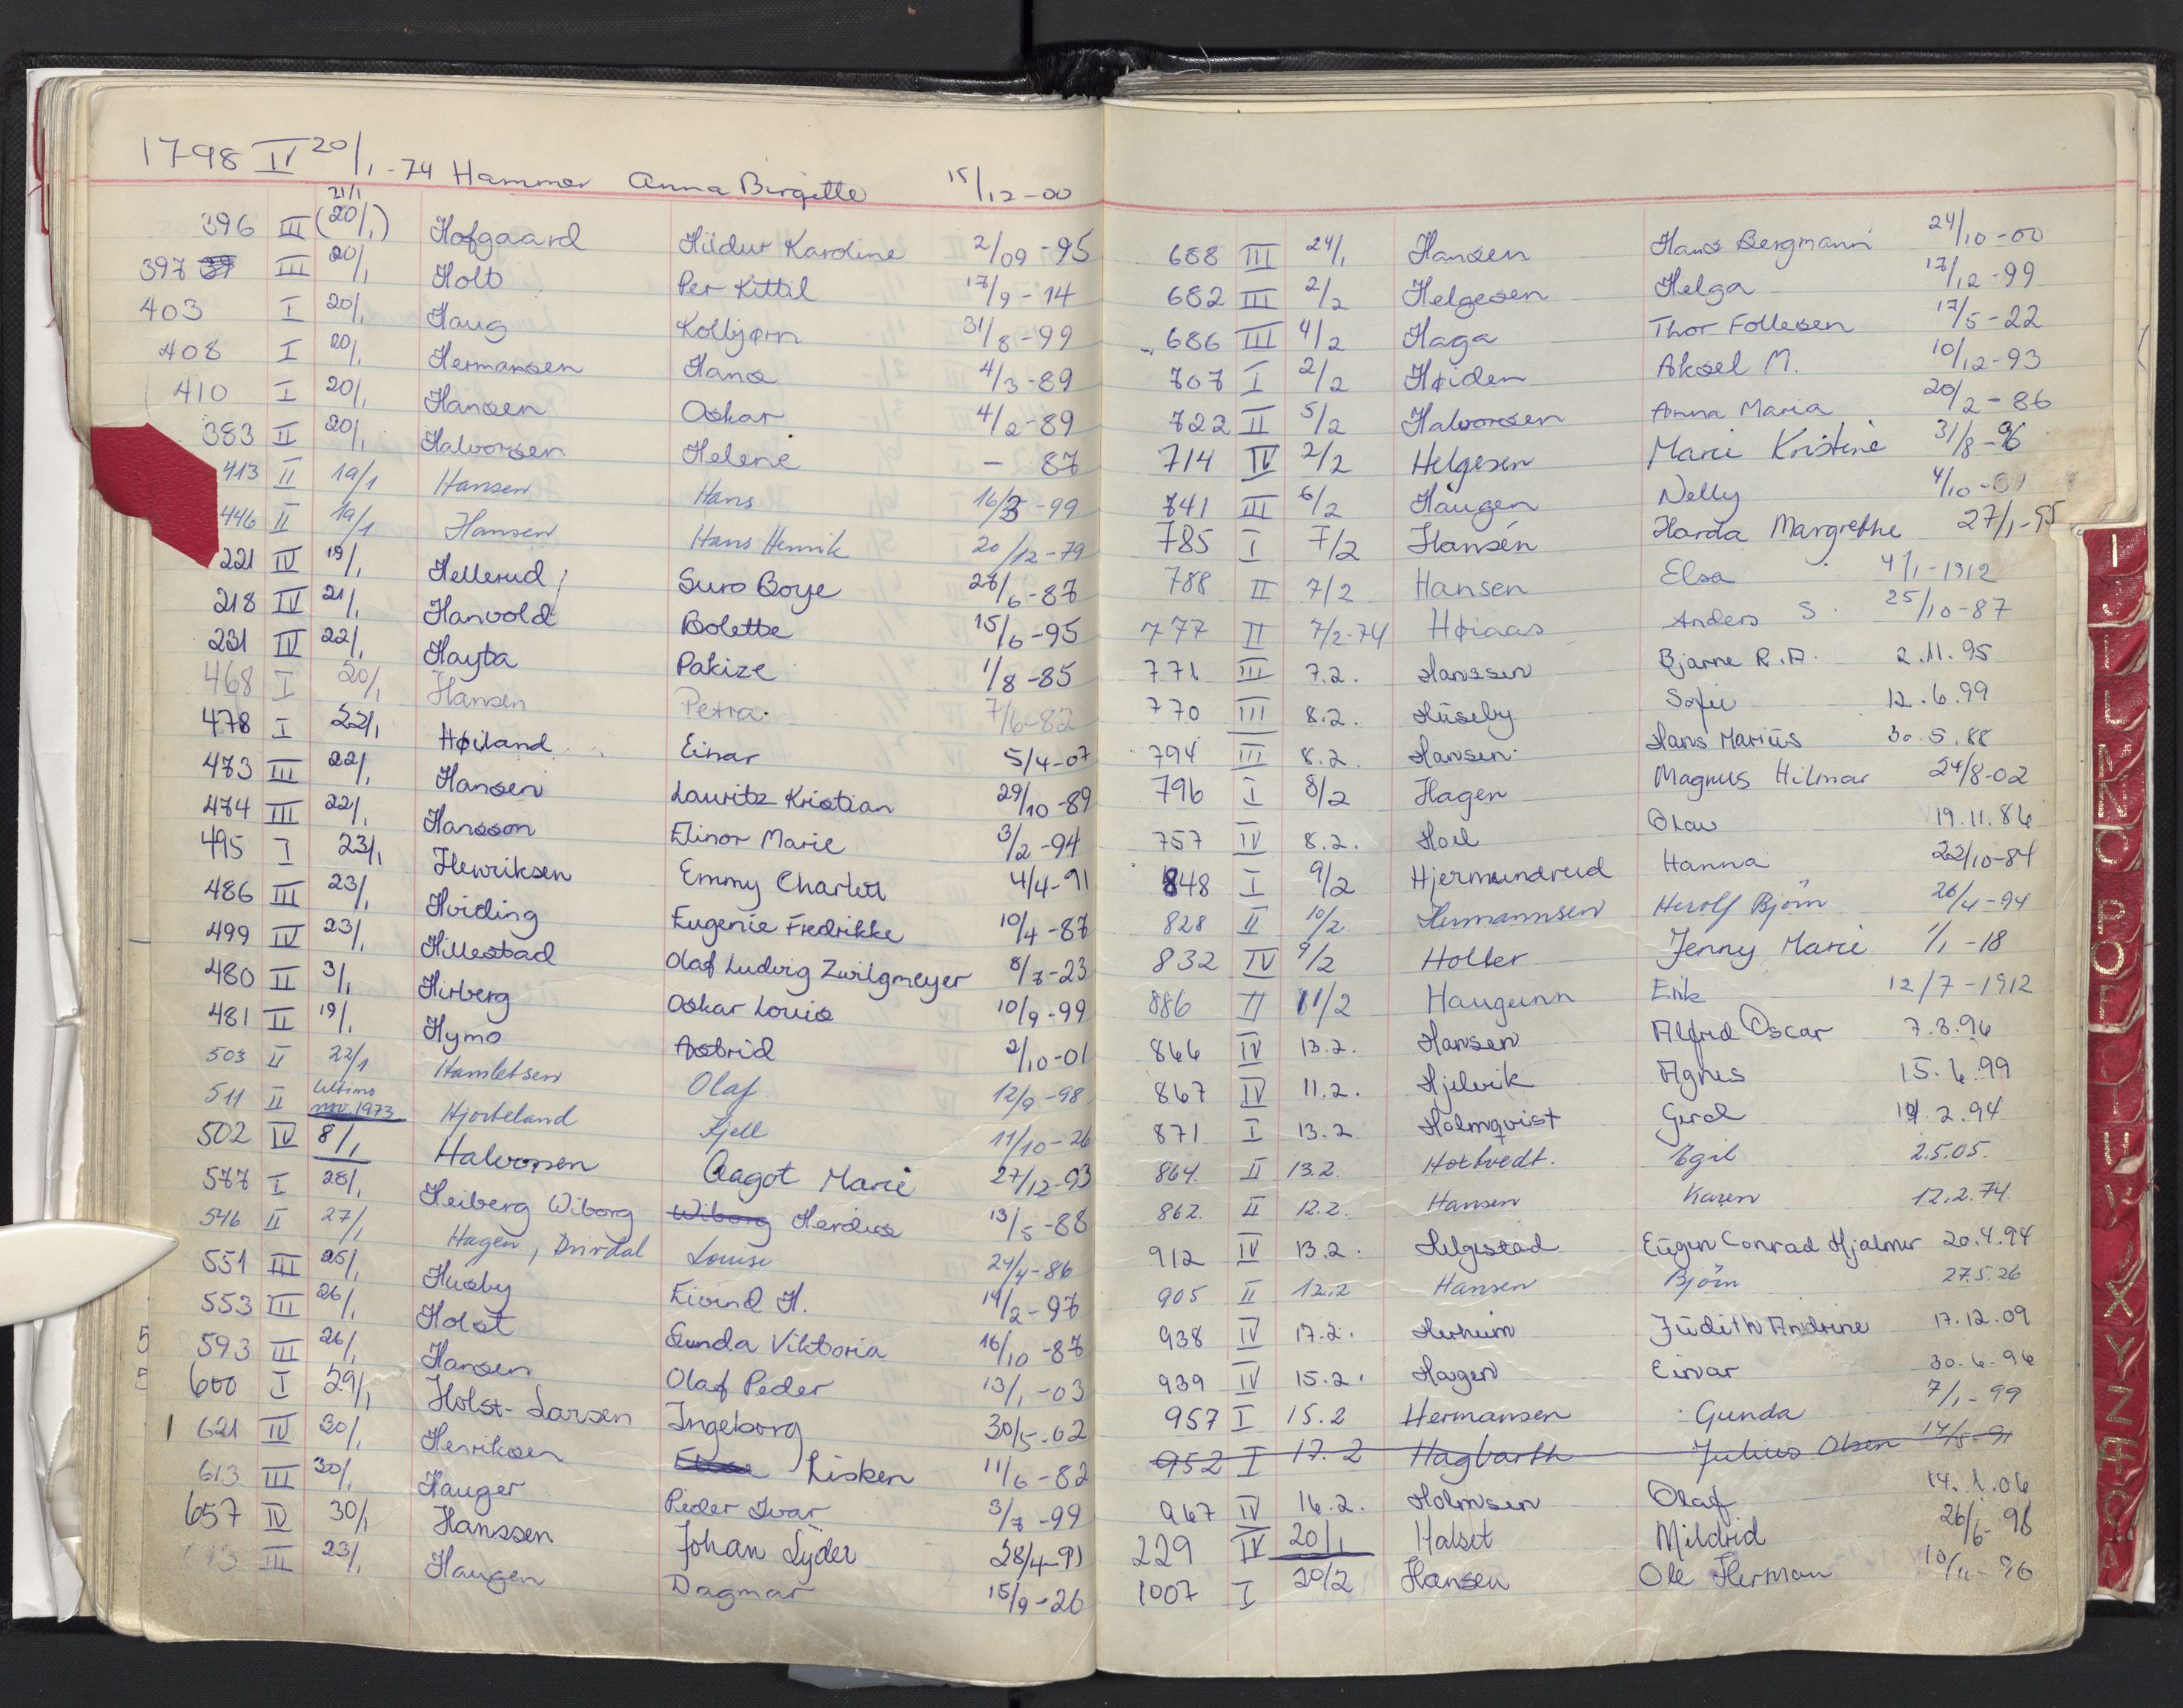 1798 IV 20/1 -74 Hammer Anna Birgitte 15/12-00
21/1
396 III (20/1) Hofgaard Hildur Karoline 2/09-95
397 III 20/1 Holt Per Kittil 17/9-14
403 I 20/1 Haug Kolbjørn 31/8-99
408 I 20/1 Hermansen Hans 4/3-89
410 I 20/1 Hansen Oskar 4/2-89
383 II 20/1 Halvorsen Helene - 87
413 II 19/1 Hansen Hans 16/3-99
446 II 19/1 Hansen Hans Henrik 20/12-79
221 IV 19/1 Hellerud Guro Boye 28/6-87
218 IV 21/1 Hanvold Bolette 15/6-95
231 IV 22/1 Hayta Pakize 1/8-85
468 I 20/1 Hansen Petra 7/6-82
478 I 22/1 Høiland Einar 5/4-07
473 III 22/1 Hansen Lauritz Kristian 29/10-89
474 III 22/1 Hansson Elinor Marie 3/2-94
495 I 23/1 Henriksen Emmy Charlot 4/4-91
486 III 23/1 Hviding Eugenie Fredrikke 10/4-87
499 IV 23/1 Hillestad Olaf Ludvig Zwilgmeyer 8/7-23
480 II 3/1 Hirberg Oskar Louis 10/9-99
481 II 19/1 Hymo Astrid 2/10-01
503 II 22/1 Hamletsen Olaf 12/9-98
511 II Ultimo nov. 1973 Hjorteland Kjell 11/10-26
502 IV 8/1 Halvorsen Aagot Marie 27/12-93
577 I 28/1 Heiberg Wiborg Wiborg Herdis 13/5-88
546 II 27/1 Hagen, Louise 24/4-86
551 III 25/1 Husby Eivind H. 14/2-97
553 III 26/1 Holst Gunda Viktoria 16/10-87
593 III 26/1 Hansen Olaf Peder 13/1-03
600 I 29/1 Holst-Larsen Ingeborg 30/5-02
621 IV 30/1 Henriksen Lisken 11/6-82
613 III 30/1 Hauger Peder Ivar 3/7-99
657 IV 30/1 Hanssen Johan Lyder 28/4-91
III 23/1 Haugen Dagmar 15/9-26
688 III 24/1 Hansen Hans Bergmann 24/10-00
682 III 2/2 Helgesen Helga 17/12-99
686 III 4/2 Haga Thor Follesen 17/5-22
707 I 2/2 Høiden Aksel M. 10/12-93
722 II 5/2 Halvorsen Anna Maria 20/2-86
714 IV 2/2 Helgesen Marie Kristine 31/8-96
741 III 6/2 Haugen Nelly 4/10-
785 I 7/2 Hansen Harda Margrethe 27/1-95
788 II 7/2 Hansen Elsa 4/1-1912
777 II 7/2-74 Høiaas Anders S. 25/10-87
771 III 7.2. Hanssen Bjarne R.A. 2.11.95
770 III 8.2. Huseby Sofie 12.6.99
794 III 8.2. Hansen Hans Marius 30.5.88
796 I 8/2 Hagen Magnus Hilmar 24/8-02
757 IV 8.2. Hoel Olav 19.11.86
848 I 9/2 Hjermundrud Hanna 22/10-84
828 II 10/2 Hermannsen Herolf Bjørn 26/4-94
832 IV 9/2 Holter Jenny Marie 1/1-18
886 II 11/2 Haugenn Erik 12/7-1912
866 IV 13.2. Hansen Alfred Oscar 7.3.96
867 IV 11.2. Hjelvik Agnes 15.6.99
871 I 13.2 Holmqvist Gerd 2.94
864. II 13.2. Holtvedt. Egil 2.5.05.
862. II 12.2. Hansen Karen 12.2.74.
912 IV 13.2. Helgestad Eugen Conrad Hjalmer 20.4.94
905 II 12.2 Hansen Bjørn 27.5.26
938 IV 17.2. Herheim Judith Andrine 17.12.09
939 IV 15.2. Hagen Einar 30.6.96
957 I 15.2 Hermansen Gunda 7/1-99
952 I 17.2 Hagbarth Julius Olsen 14/5-91
967 IV 16.2. Holmsen Olaf 14.1.06
229 IV 20/1 Halset Mildrid 26/6-98
1007 I 20/2 Hansen Ole Herman 10/11-96
I
J
K
L
M
N
O
P
Q
R
S
T
U
V
X
Y
Z
Æ
Ø